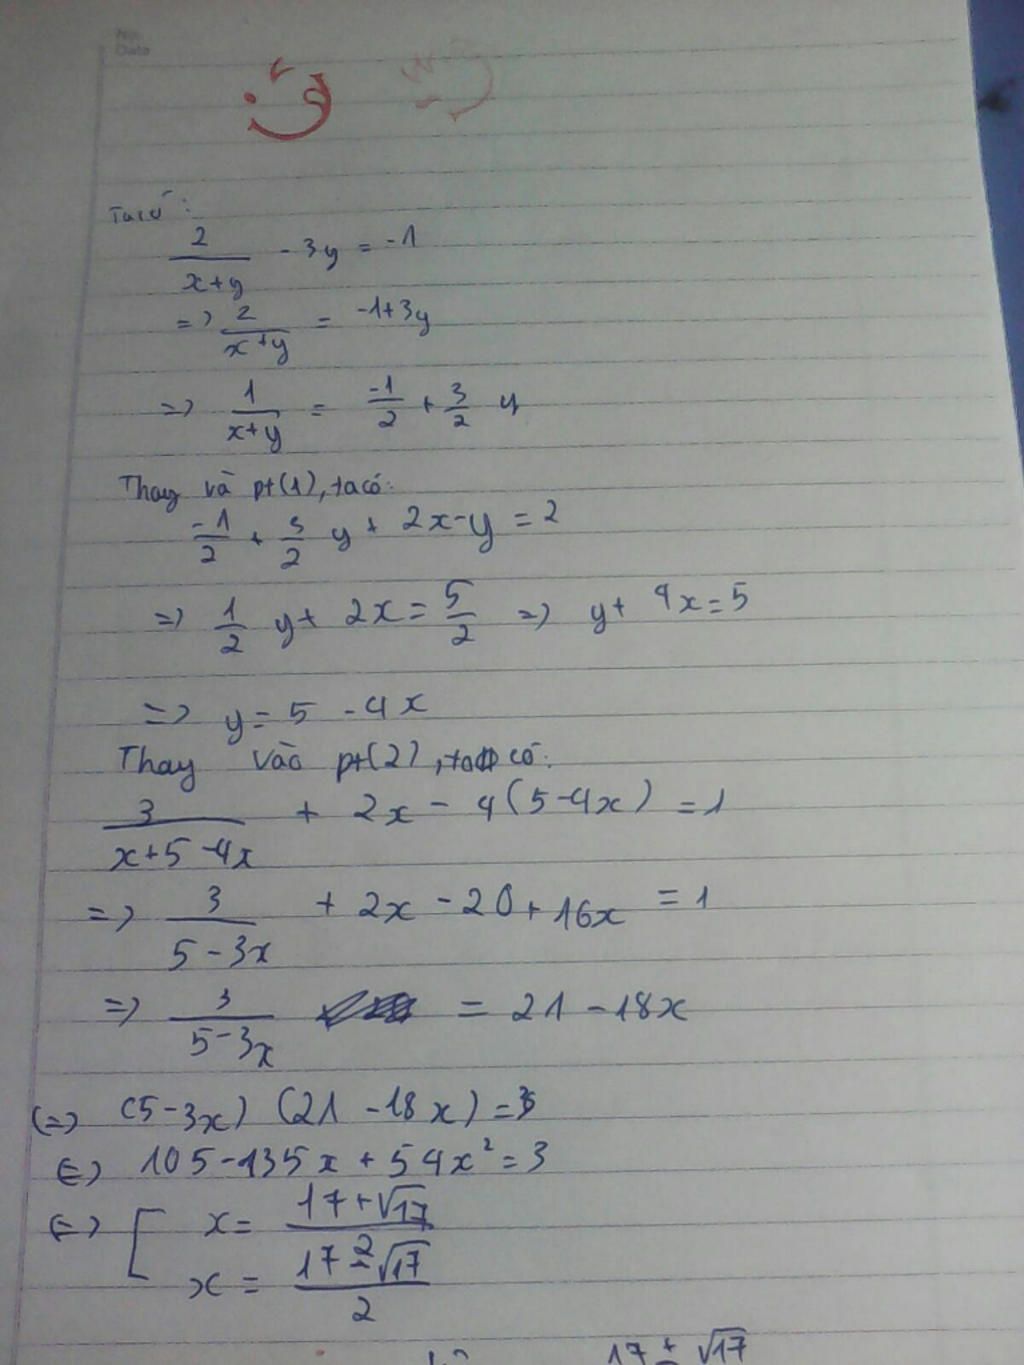 No.
Date
Ta có:
2/(x+y) - 3y = -1
=> 2/(x+y) = -1+3y
=> 1/(x+y) = -1/2 + 3/2 y
Thay và pt(1), ta có:
-1/2 + 3/2 y + 2x-y = 2
=> 1/2 y + 2x = 5/2 => y + 4x = 5
=> y = 5 - 4x
Thay vào pt(2), ta có:
3/(x+5-4x) + 2x - 4(5-4x) = 1
=> 3/(5-3x) + 2x - 20 + 16x = 1
=> 3/(5-3x) = 21 - 18x
(=) (5-3x) (21-18x) = 3
(=) 105 - 135x + 54x² = 3
(=) [ x = (17+√17)/2
x = (17-√17)/2
17 + √17